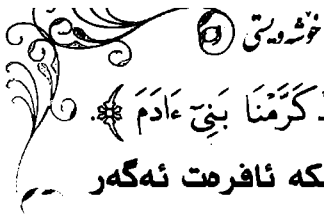 خۆشەویستی
كَرَّمْنَا بَنِيٓ ءَادَمَ ﴾.
ئافرەت ئەگەر